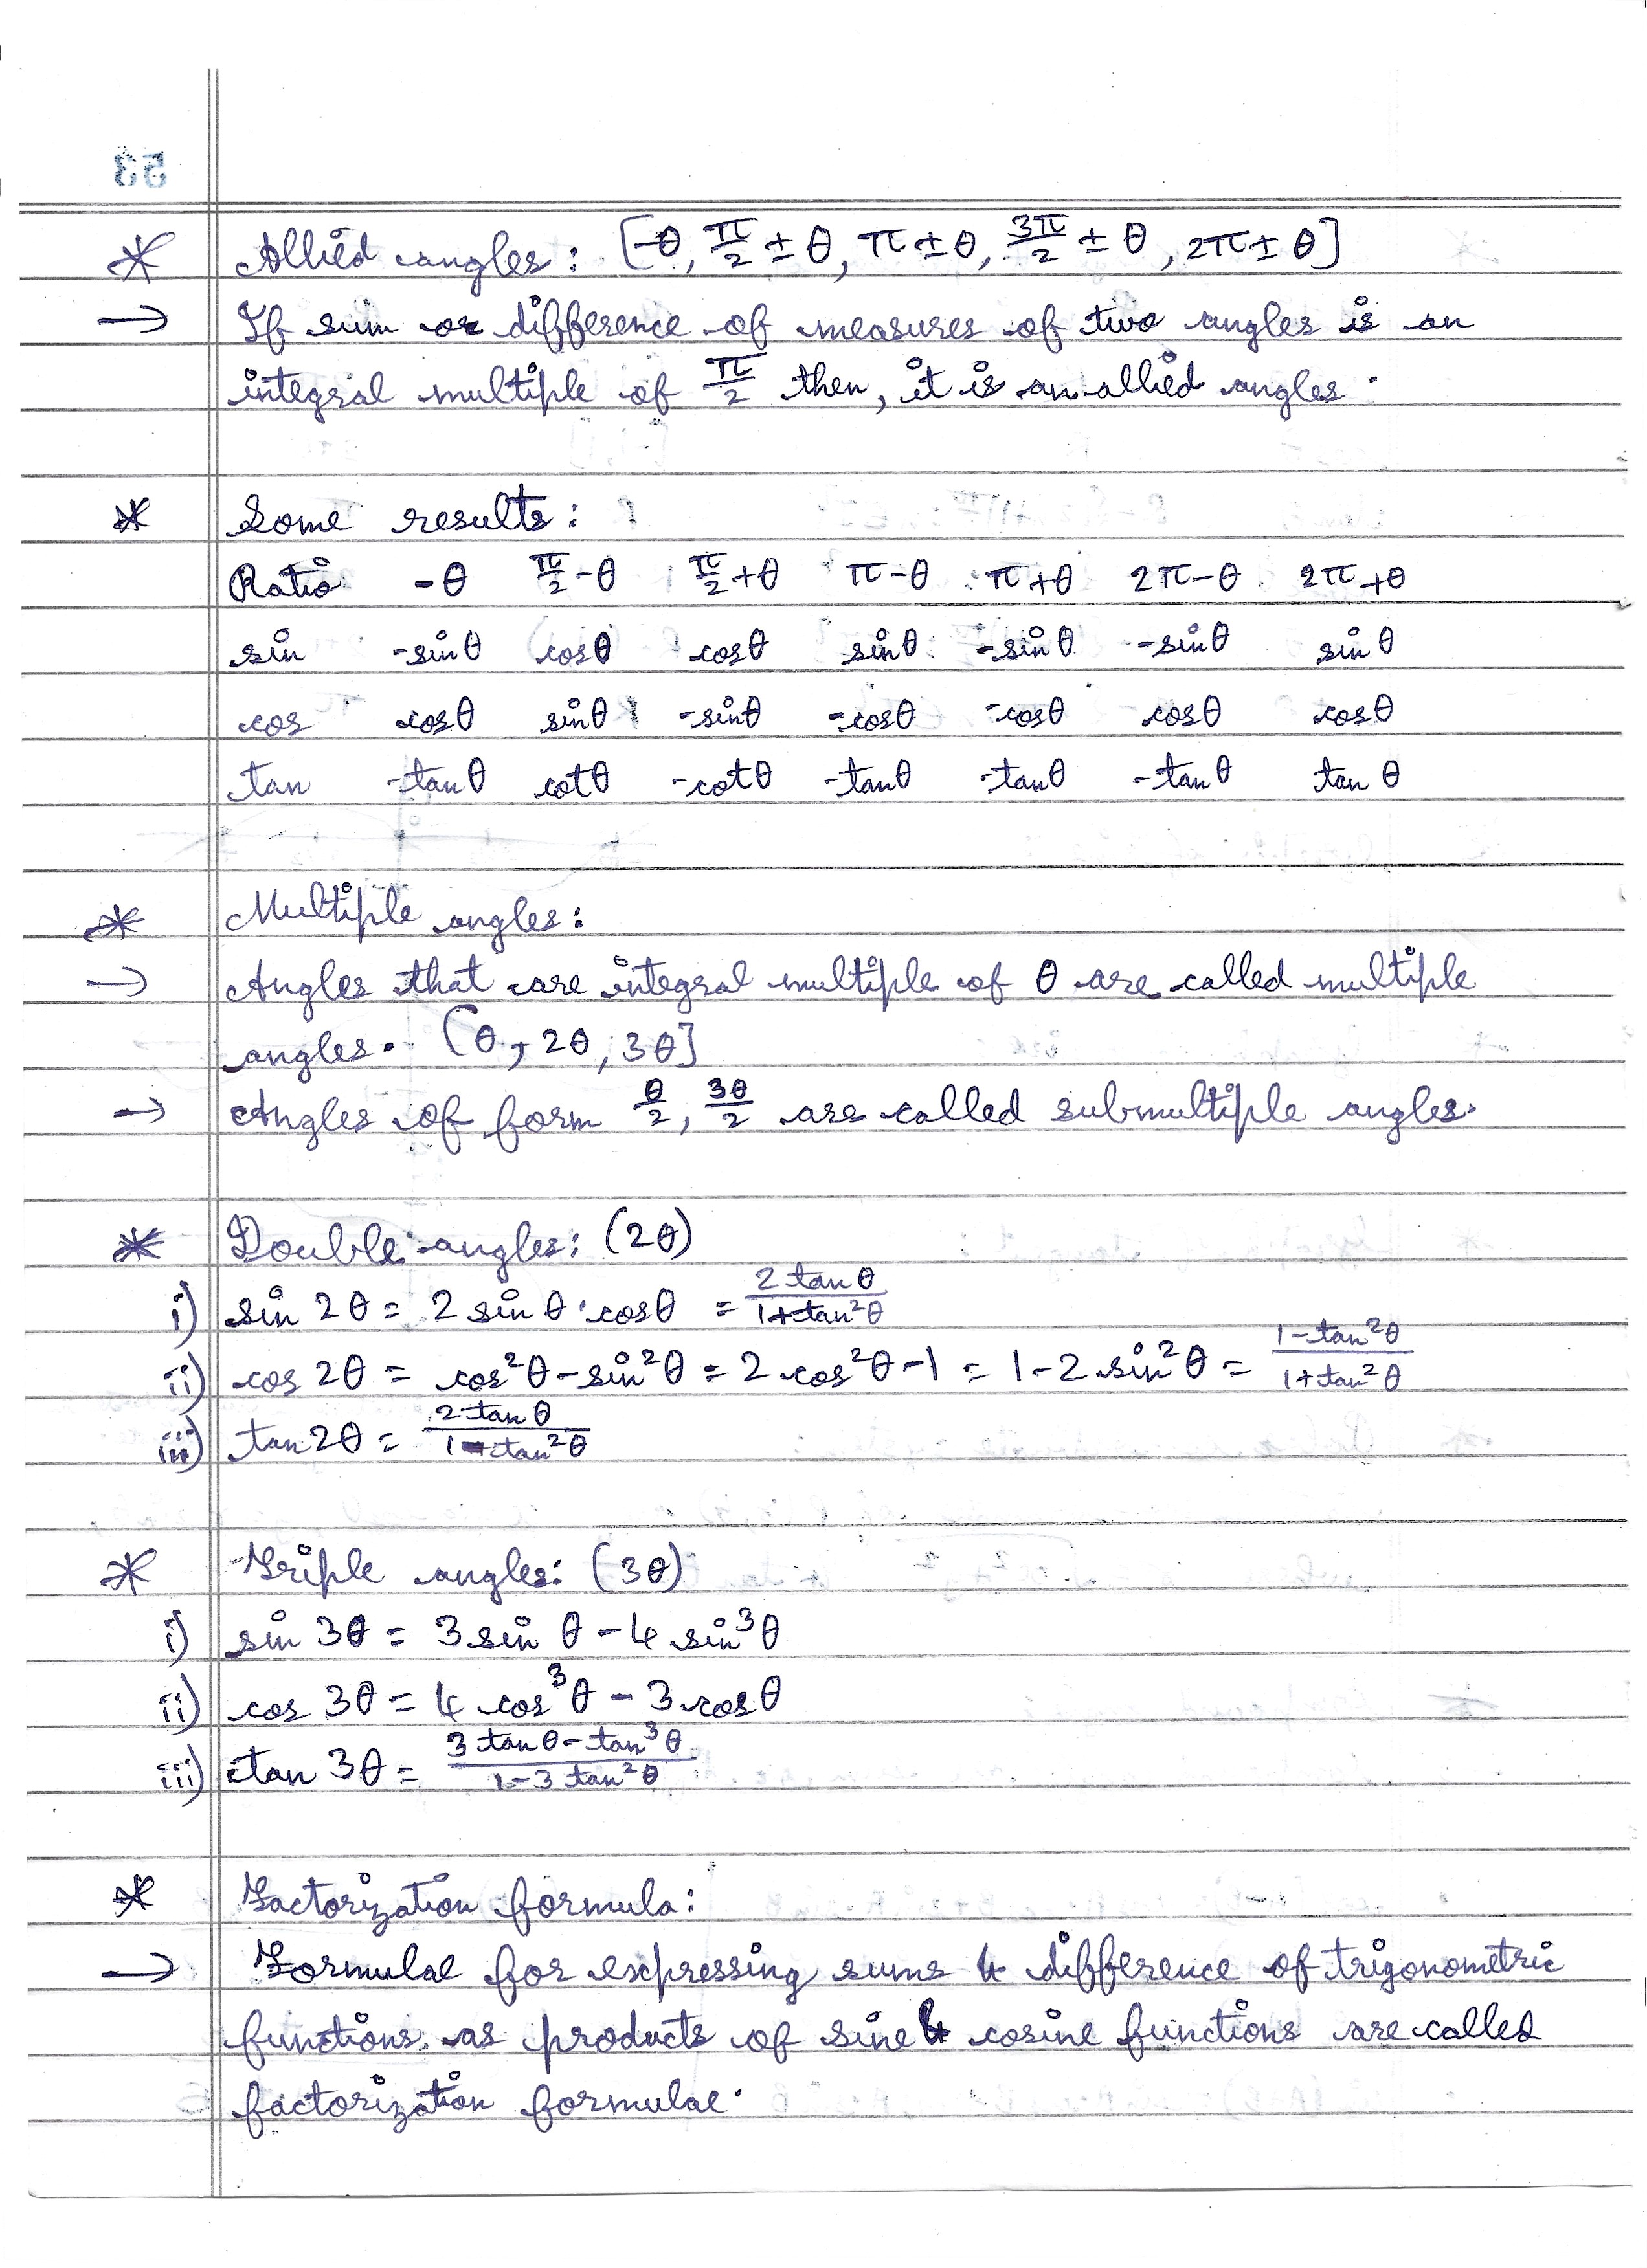 53
* Allied angles: [-θ, π/2 ± θ, π ± θ, 3π/2 ± θ, 2π ± θ]
→ If sum or difference of measures of two angles is an
integral multiple of π/2 then, it is an allied angles.
* Some results:
Ratio -θ π/2-θ π/2+θ π-θ π+θ 2π-θ 2π+θ
sin -sinθ cosθ cosθ sinθ -sinθ -sinθ sinθ
cos cosθ sinθ -sinθ -cosθ -cosθ cosθ cosθ
tan -tanθ cotθ -cotθ -tanθ -tanθ -tanθ tanθ
* Multiple angles:
→ Angles that are integral multiple of θ are called multiple
angles. (θ, 2θ, 3θ]
→ Angles of form θ/2, 3θ/2 are called submultiple angles.
* Double angles: (2θ)
i) sin 2θ = 2 sin θ · cosθ = 2 tan θ / 1+tan²θ
ii) cos 2θ = cos²θ - sin²θ = 2 cos²θ - 1 = 1 - 2 sin²θ = 1-tan²θ / 1+tan²θ
iii) tan 2θ = 2 tan θ / 1-tan²θ
* Triple angles: (3θ)
i) sin 3θ = 3 sin θ - 4 sin³θ
ii) cos 3θ = 4 cos³θ - 3 cosθ
iii) tan 3θ = 3 tan θ - tan³θ / 1-3 tan²θ
* Factorization formula:
→ Formulae for expressing sums & difference of trigonometric
functions as products of sine & cosine functions are called
factorization formulae.